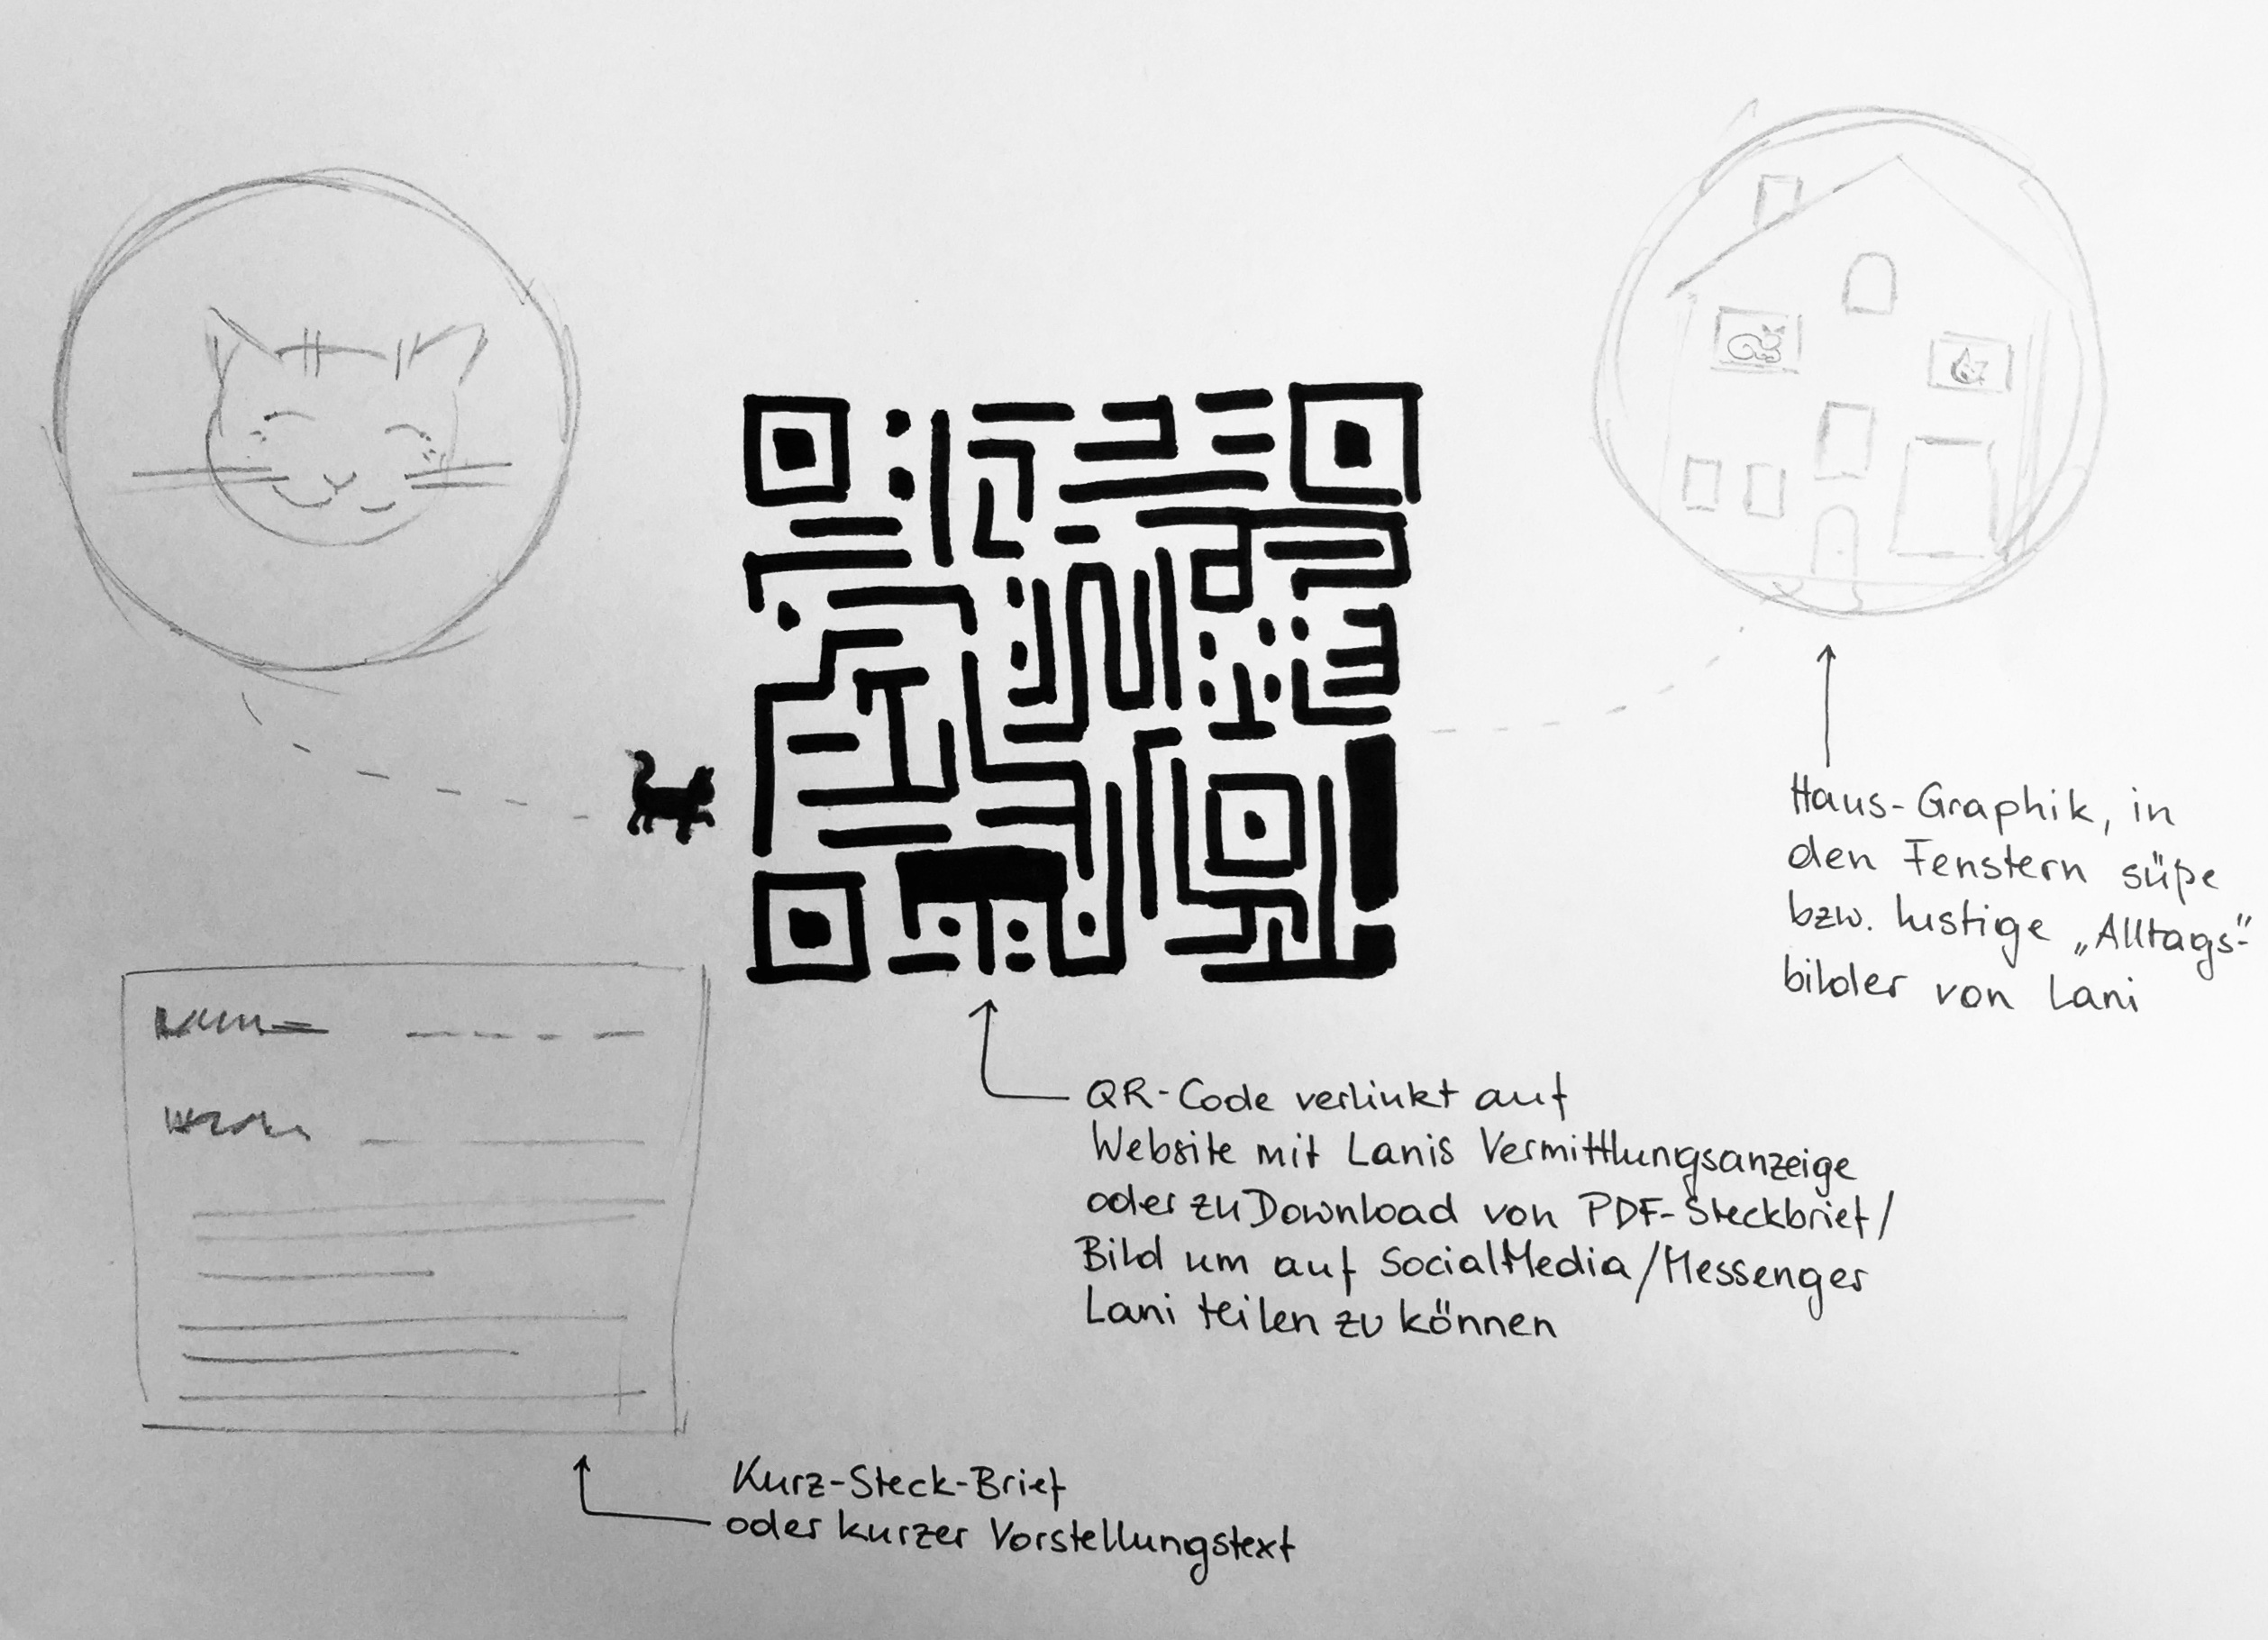 Haus-Graphik, in
den Fenstern süße
bzw. lustige „Alltags"-
bilder von Lani
QR-Code verlinkt auf
Website mit Lanis Vermittlungsanzeige
oder zu Download von PDF-Steckbrief/
Bild um auf SocialMedia/Messenger
Lani teilen zu können
Kurz-Steck-Brief
oder kurzer Vorstellungstext